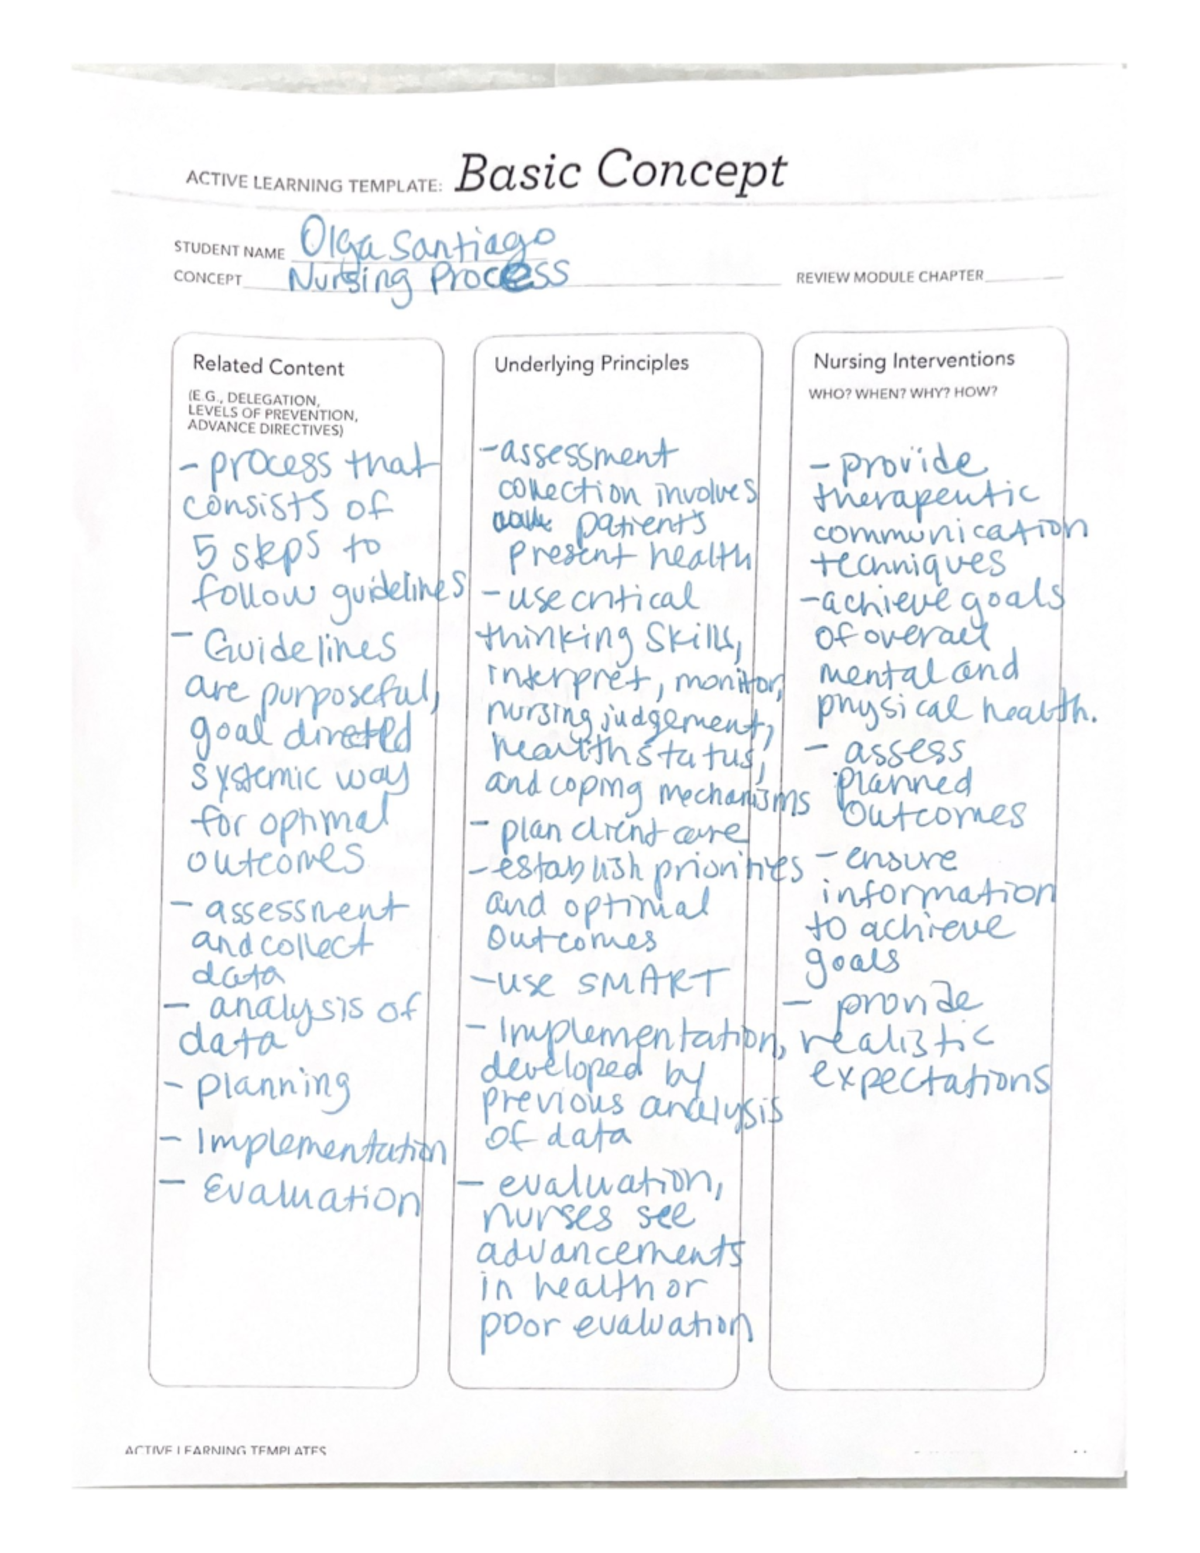 ACTIVE LEARNING TEMPLATE: Basic Concept
STUDENT NAME Olga Santiago
CONCEPT Nursing Process
REVIEW MODULE CHAPTER
Related Content
(E.G., DELEGATION,
LEVELS OF PREVENTION,
ADVANCE DIRECTIVES)
- process that
consists of
5 steps to
follow guidelines
- Guidelines
are purposeful,
goal directed
systemic way
for optimal
outcomes
- assessment
and collect
data
- analysis of
data
- planning
- Implementation
- Evaluation
Underlying Principles
- assessment
collection involves
patient's
present health
- use critical
thinking skills,
interpret, monitor,
nursing judgement,
health status,
and coping mechanisms
- plan client care
- establish priorities
and optimal
outcomes
- use SMART
- Implementation,
developed by
previous analysis
of data
- evaluation,
nurses see
advancements
in health or
poor evaluation
Nursing Interventions
WHO? WHEN? WHY? HOW?
- provide
therapeutic
communication
techniques
- achieve goals
of overall
mental and
physical health.
- assess
planned
outcomes
- ensure
information
to achieve
goals
- provide
realistic
expectations
ACTIVE LEARNING TEMPLATES